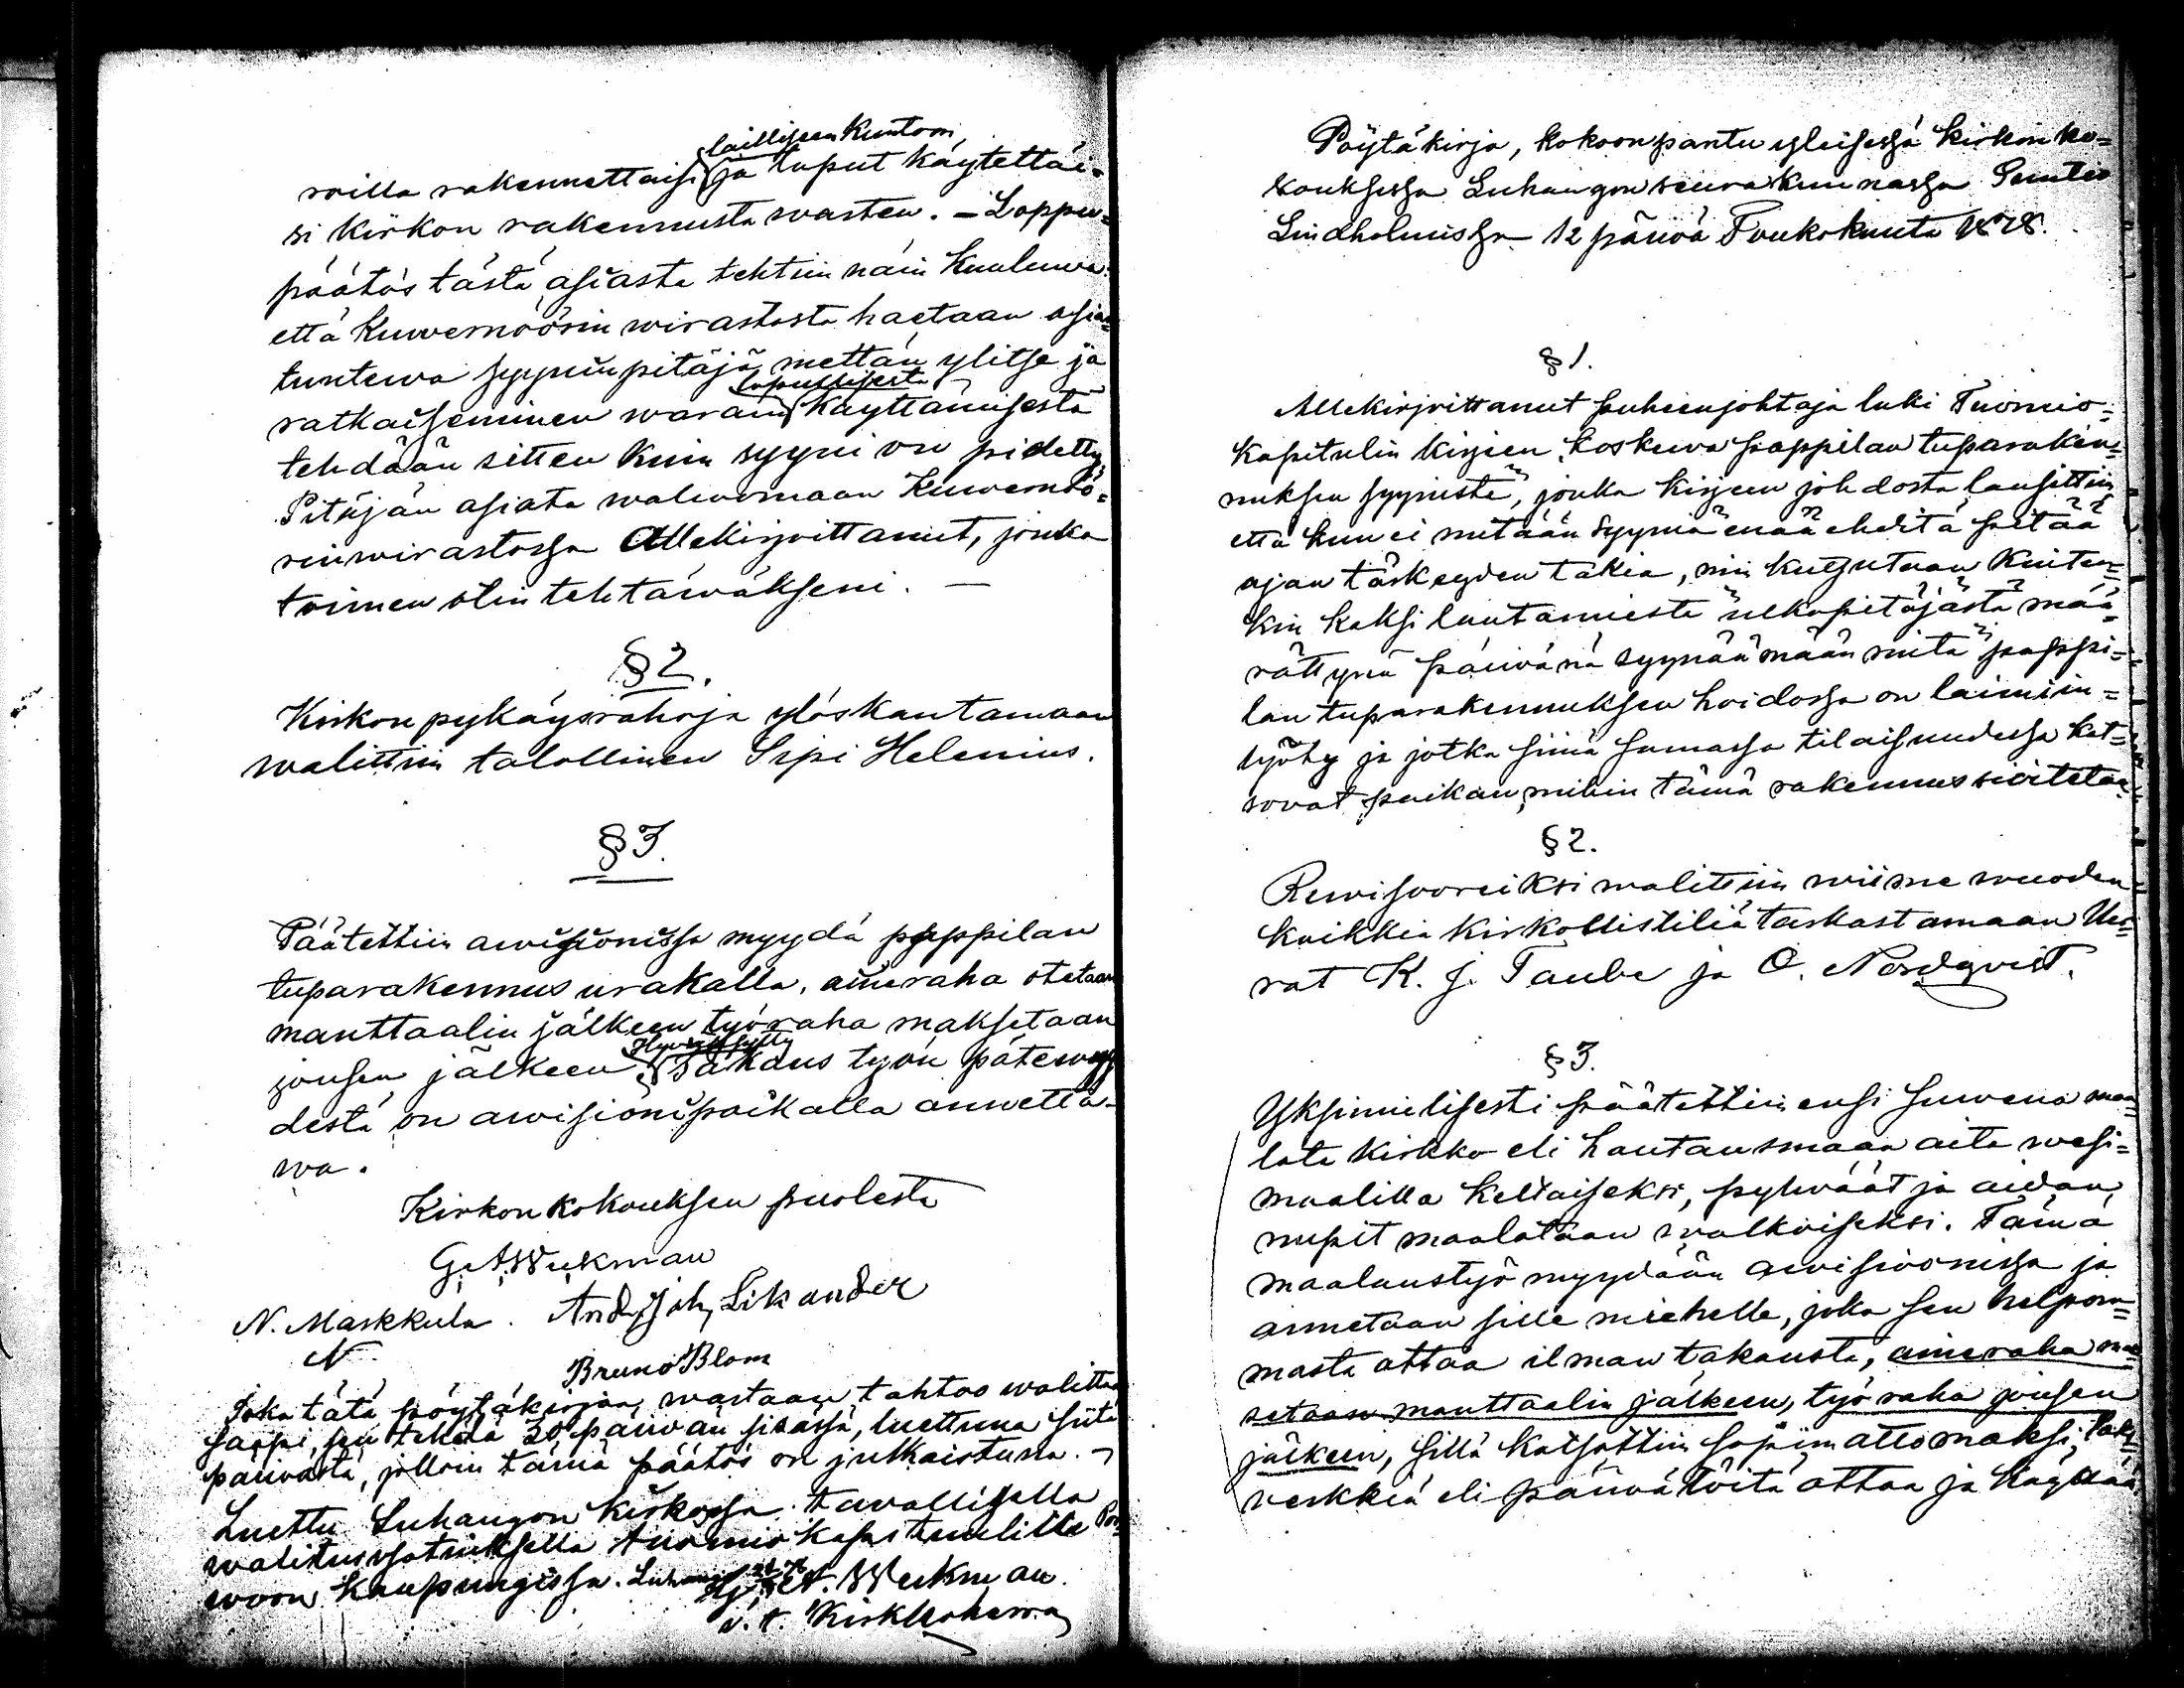 lailliseen kuntoon,
roilla rakennettaisi ja loput käytettäi-
si kirkon rakennusta wasten. – Loppu-
päätös tästä asiasta tehtiin näin kuuluwa:
että kuwernöörin wirastosta haetaan asian-
tuntewa syyniinpitäjä mettän ylitse ja
lopullisesta
ratkaiseminen warain käyttämisestä
tehdään sitten kuin syyni on pidetty.
Pitäjän asiata walwomaan Kuwernöö-
rinwirastossa Allekirjoittanut, jonka
toimen otin tehtäwäkseni. —
§ 2.
Kirkon pykäysrahoja ylöskantamaan
walittiin talollinen Sipi Helenius.
§ 3.
Päätettiin awisionissa myydä pappilan
tuparakennus urakalla, aineraha otetaan
manttaalin jälkeen työraha maksetaan
Hywäksytty
jousen jälkeen takaus työn pätewyy-
destä on awisionipaikalla annetta-
wa.
Kirkon kokouksen puolesta
G. A. Wukman
N. Markkula. And. Joh. Sikander
N. Bruno Blom
Joka tätä pöytäkirjaa wastaan tahtoo walittaa
saapi sen tehdä 30 päiwän sisässä, luettuna siitä
päiwästä, jolloin tämä päätös on julkaistuna. –
Luettu Luhangon kirkossa tawallisella
walitusosotuksella tuomiokapitulille Por-
woon kaupungissa. G. A. Wukman
v. t. Kirkkoherra
Pöytäkirja, kokoonpantu yleisessä kirkon ko-
kouksessa Luhangon seurakunnassa
Lindholmissa 12 päiwä Toukokuuta 1878.
§ 1.
Allekirjoittanut puheenjohtaja luki Tuomio-
kapitulin kirjeen, koskewa pappilan tuparaken-
nuksen syynistä, jonka kirjeen johdosta lausittiin
että kun ei mitään syyniä enää ehditä pitää
ajan täskeyden takia, niin kutsutaan kuiten-
kin kaksi lautamiestä ulkopitäjästä mää-
rättynä päiwänä syynäämään mitä pappi-
lan tuparakennuksen hoidossa on laimiin-
lyöty ja jotka siinä samassa tilaisuudessa kat-
sovat paikan, mihin tämä rakennus siirtetään.
§ 2.
Rewisooreiksi walittiin wiime wuoden
kaikkia kirkollistiliä tarkastamaan Her-
rat K. J. Taube ja O. Nordqvist.
§ 3.
Yksimielisesti päätettiin ensi suwena maa-
lata kirkko eli hautausmaan aita wesi-
maalilla keltaiseksi, pylwäät ja aidan
nupit maalataan walkoiseksi. Tämä
maalaustyö myydään awisioonissa ja
annetaan sille miehelle, joka sen helpom-
masta ottaa ilman takausta, aineraha mak-
setaan manttaalin jälkeen, työraha jousen
jälkeen, sillä katsottiin sopimattomaksi,
verkkiä eli päiwätöitä ottaa ja käyttää